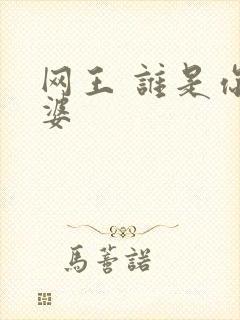 网王 誰是你
婆
馬薈諾